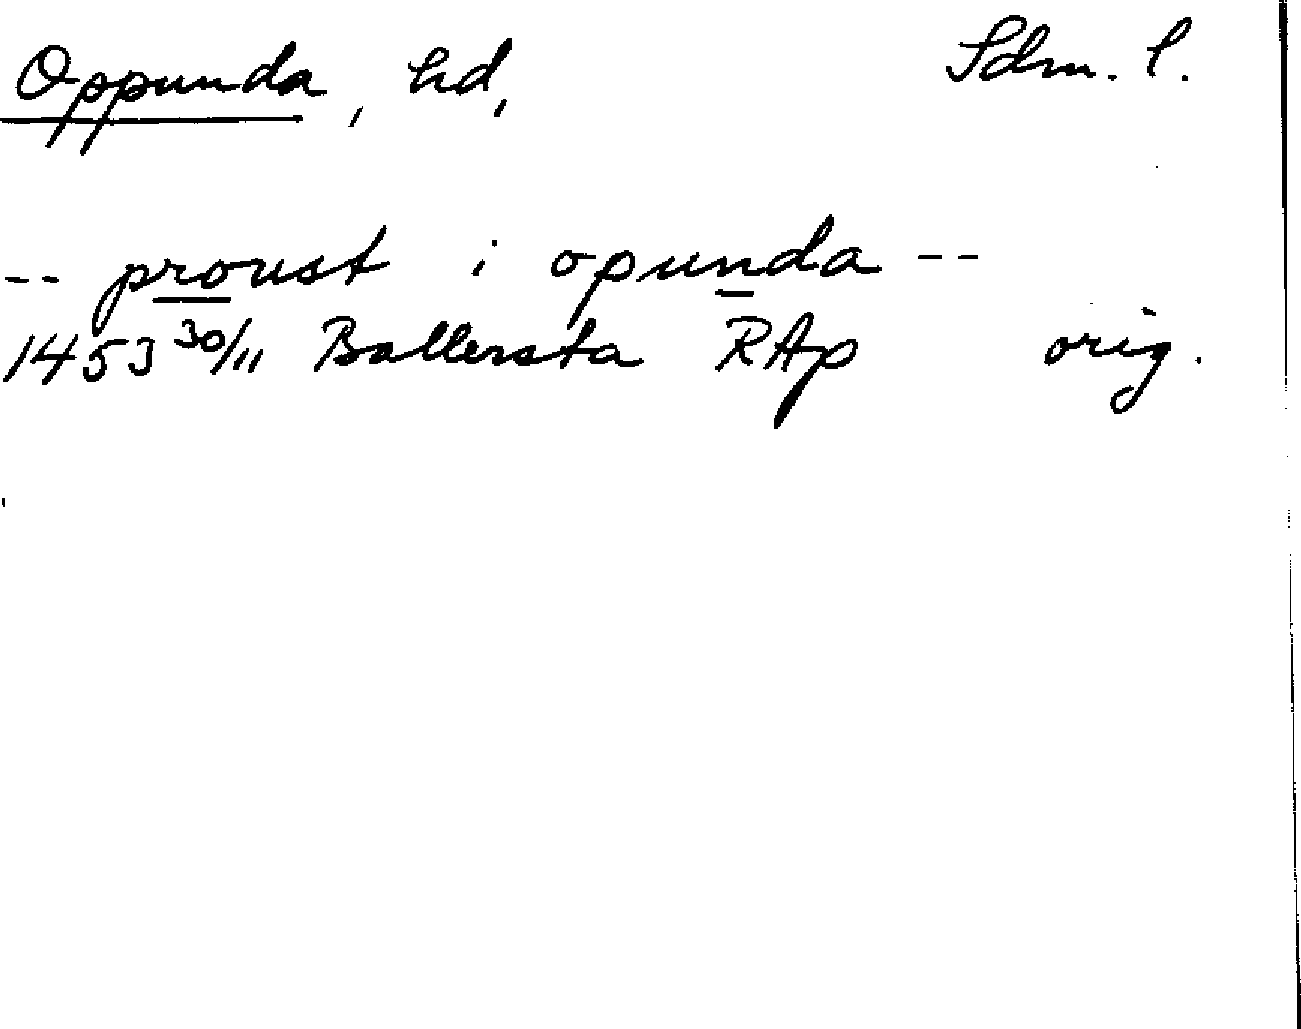 Oppunda, hd, Sdm. l.
-- proust i opunda --
1453 30/11 Ballersta RAp orig.